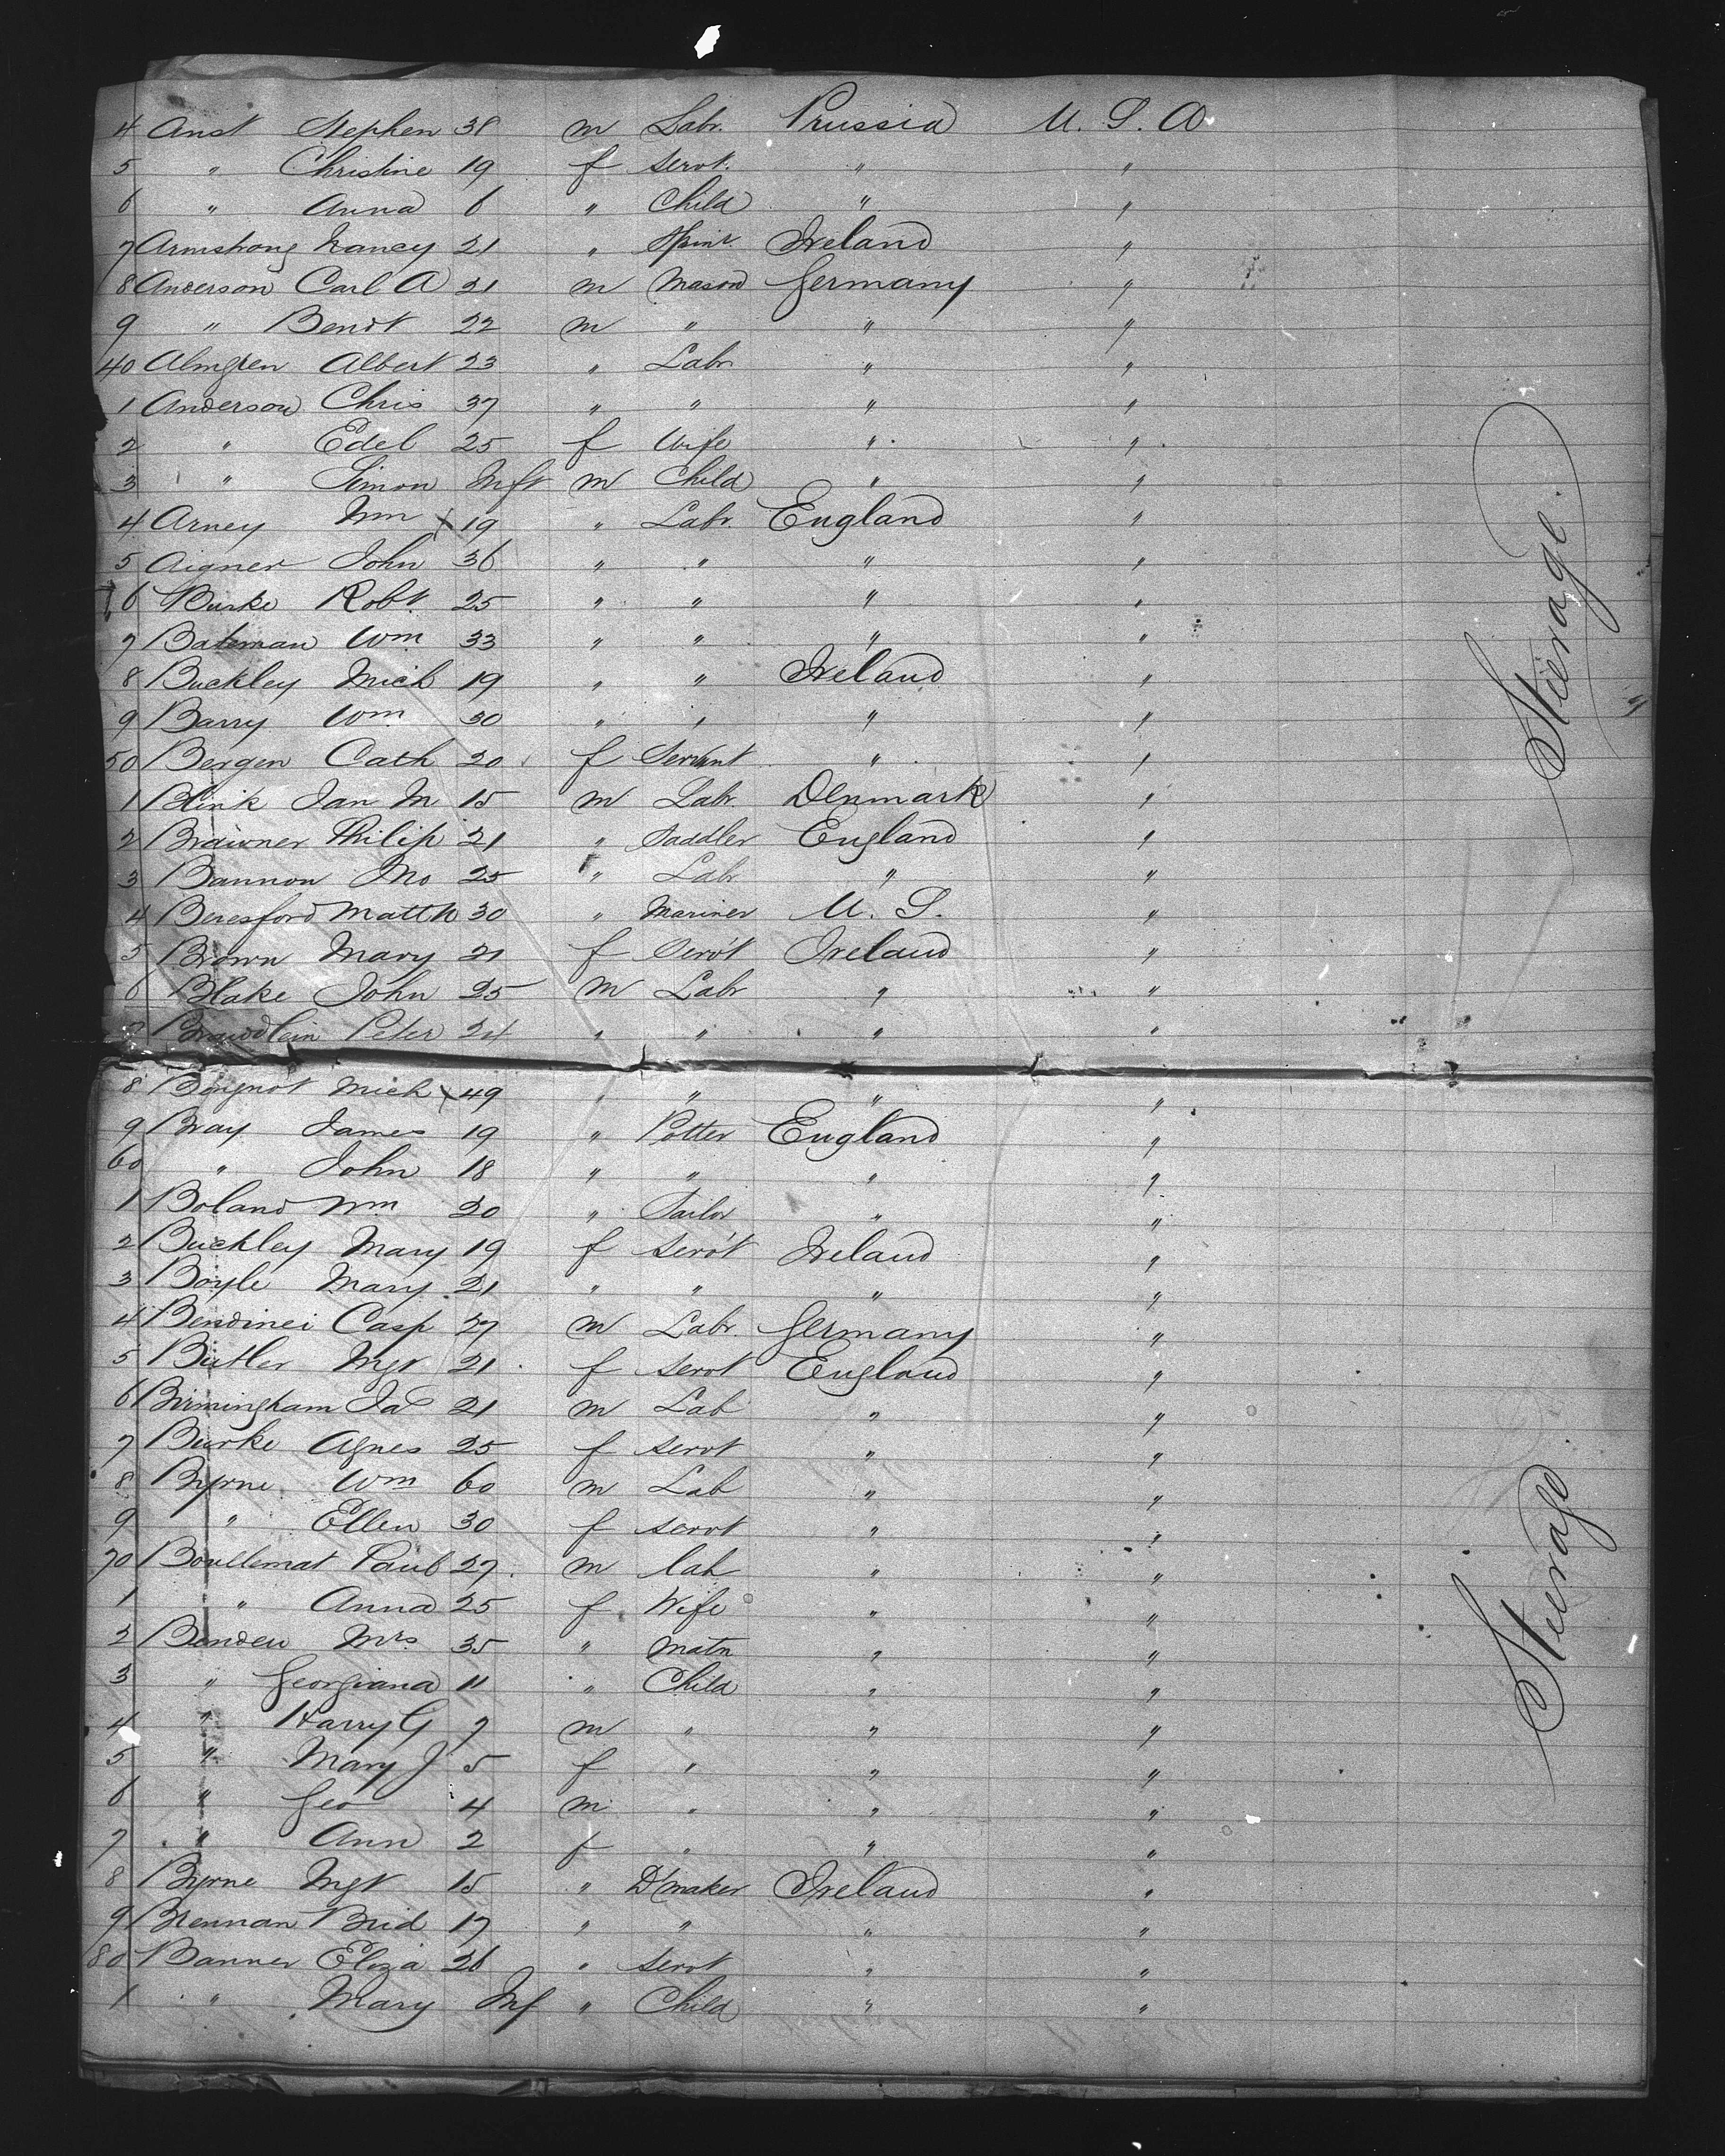 4 Anst Stephen 38 m Labr. Prussia U. S. A
5 " Christine 19 f servt. " "
6 " Anna 6 " Child " "
7 Armstrong Nancy 21 " Spinr Ireland "
8 Anderson Carl A 21 m mason Germany "
9 " Bendt 22 m " " "
40 Almgren Albert 23 " Labr " "
1 Anderson Chris 37 " " " "
2 " Edel 25 f Wife " "
3 " Simon Inft m Child " "
4 Arney Wm x 19 " Labr. England "
5 Aigner John 36 " " " "
6 Burke Robt. 25 " " " "
7 Bateman Wm 33 " " " "
8 Buckley Mich 19 " " Ireland "
9 Barry Wm 30 " " " "
50 Bergen Cath 20 f Servant " "
1 Blink Jan M 15 m Labr. Denmark "
2 Brawner Philip 21 " Saddler England "
3 Bannon Jno 25 " Labr " "
4 Beresford Matth 30 " Mariner U. S. "
5 Brown Mary 21 f Servt Ireland "
6 Blake John 25 m Labr " "
7 Peter 24 " " " "
8 Mich x 49 " " " "
9 Bray James 19 " Potter England "
60 " John 18 " " " "
1 Boland Wm 20 " Tailor " "
2 Buckley Mary 19 f servt Ireland "
3 Boyle Mary 21 " " " "
4 Bendinei Casp 27 m Labr. Germany "
5 Butler Mgt 21 f servt England "
6 Birmingham Jas 21 m Lab " "
7 Burke Agnes 25 f servt " "
8 Byrne Wm 60 m Lab " "
9 " Ellen 30 f servt " "
70 Boullemat Paul 27 m lab " "
1 " Anna 25 f Wife " "
2 Benden Mrs 35 " matn " "
3 " Georgiana 11 " Child " "
4 " Harry G 7 m " " "
5 " Mary J 5 f " " "
6 " Geo 4 m " " "
7 " Ann 2 f " " "
8 Byrne Mgt 15 " D'maker Ireland "
9 Brennan Brid 17 " " " "
80 Banner Eliza 26 " servt " "
1 " Mary Inf " Child " "
Steerage.
Steerage